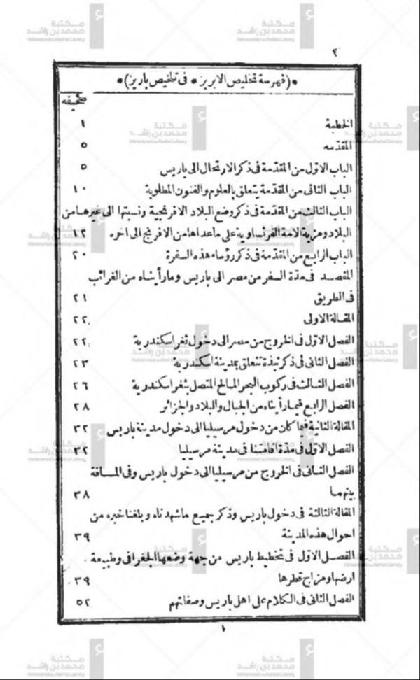 ٢
* (فهرسة تخليص الابريز * فى تلخيص باريز) *
صحيفه
الخطبة ١
المقدمه ٥
الباب الاول من المقدمة فى ذكر الارتحال الى باريس ٥
الباب الثانى من المقدمة يتعلق بالعلوم والفنون المطلوبة ١٠
الباب الثالث من المقدمة فى ذكر وضع البلاد الافرنجية ونسبتها الى غيرها من
البلاد ومزية الامة الفرنساوية على ماعداها من الافرنج الى آخره ١٢
الباب الرابع من المقدمة فى ذكر رؤساء هذه السفرة ٢٠
المقصد فى مدة السفر من مصر الى باريس ومارأيناه من الغرائب
فى الطريق ٢١
المقالة الاولى ٢٢
الفصل الاول فى الخروج من مصر الى دخول ثغر اسكندرية ٢٢
الفصل الثانى فى ذكر نبذة تتعلق بمدينة اسكندرية ٢٣
الفصل الثالث فى ركوب البحر المالح المتصل بثغر اسكندرية ٢٦
الفصل الرابع فيما رأيناه من الجبال والبلاد والجزائر ٢٨
المقالة الثانية فيما كان من دخول مرسيليا الى دخول مدينة باريس ٣٢
الفصل الاول فى مدة اقامتنا فى مدينة مرسيليا ٣٢
الفصل الثانى فى الخروج من مرسيليا الى دخول باريس وفى المسافة
بينهما ٣٨
المقالة الثالثة فى دخول باريس وذكر جميع ماشهدناه وبلغنا خبره من
احوال هذه المدينة ٣٩
الفصل الاول فى تخطيط باريس من جهة وضعها الجغرافى وطبيعة
ارضها ومزاج قطرها ٣٩
الفصل الثانى فى الكلام على اهل باريس وصفاتهم ٥٢
١
مكتبة
محمد بن راشد